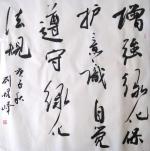 增强绿化保
护意識自觉
遵守绿化
法规